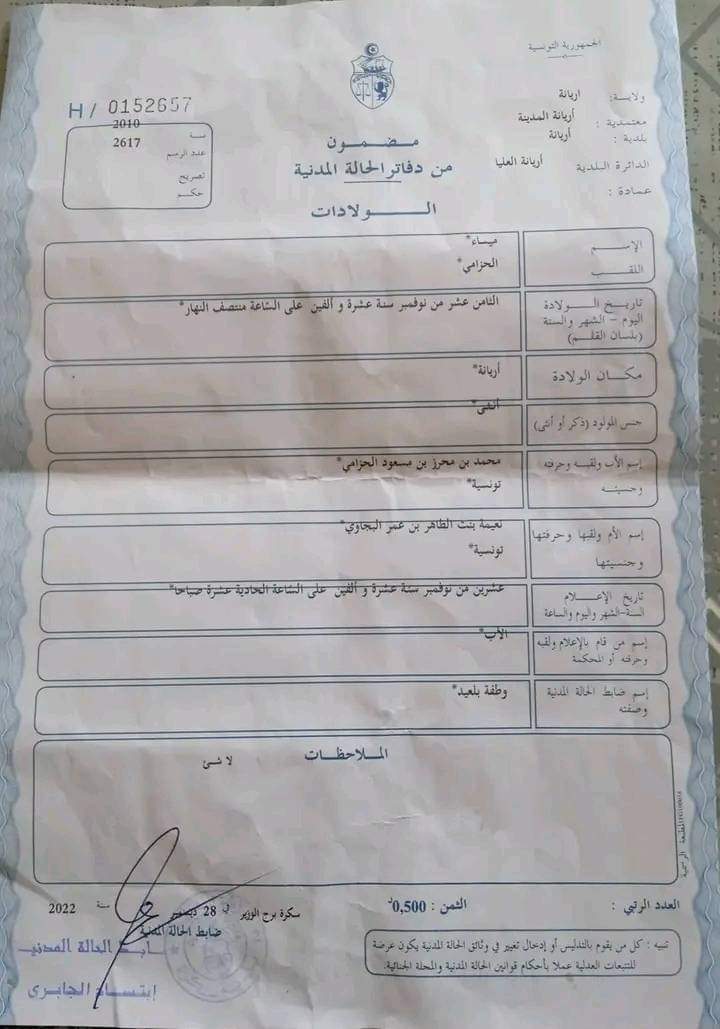 الجمهورية التونسية
ولاية: اريانة
معتمدية: أريانة المدينة
بلدية: أريانة
الدائرة البلدية أريانة العليا
عمادة:
H/ 0152657
سنة 2010
عدد الرسم 2617
تصريح
حكم
مضمون
من دفاتر الحالة المدنية
الولادات
الإسم ميساء*
اللقب الحزامي*
تاريخ الولادة
اليوم - الشهر والسنة
(بلسان القلم)
الثامن عشر من نوفمبر سنة عشرة و ألفين على الساعة منتصف النهار*
مكان الولادة أريانة*
جنس المولود (ذكر أو أنثى) أنثى*
إسم الأب ولقبه وحرفته محمد بن محرز بن مسعود الحزامي*
وجنسيته تونسية*
إسم الأم ولقبها وحرفتها نعيمة بنت الطاهر بن عمر البجاوي*
وجنسيتها تونسية*
تاريخ الإعلام
السنة-الشهر واليوم والساعة
عشرين من نوفمبر سنة عشرة و ألفين على الساعة الحادية عشرة صباحا*
إسم من قام بالإعلام ولقبه
وحرفته أو المحكمة
الأب*
إسم ضابط الحالة المدنية
وصفته
وطفة بلعيد*
الملاحظات
لا شئ
المطبعة الرسمية
العدد الرتبي :
الثمن : 0,500د
سكرة برج الوزير في 28 ديسمبر سنة 2022
ضابط الحالة المدنية
ضابط الحالة المدنية
إبتسام الجابري
تنبيه : كل من يقوم بالتدليس أو إدخال تغيير في وثائق الحالة المدنية يكون عرضة
للتتبعات العدلية عملا بأحكام قوانين الحالة المدنية والمجلة الجنائية.